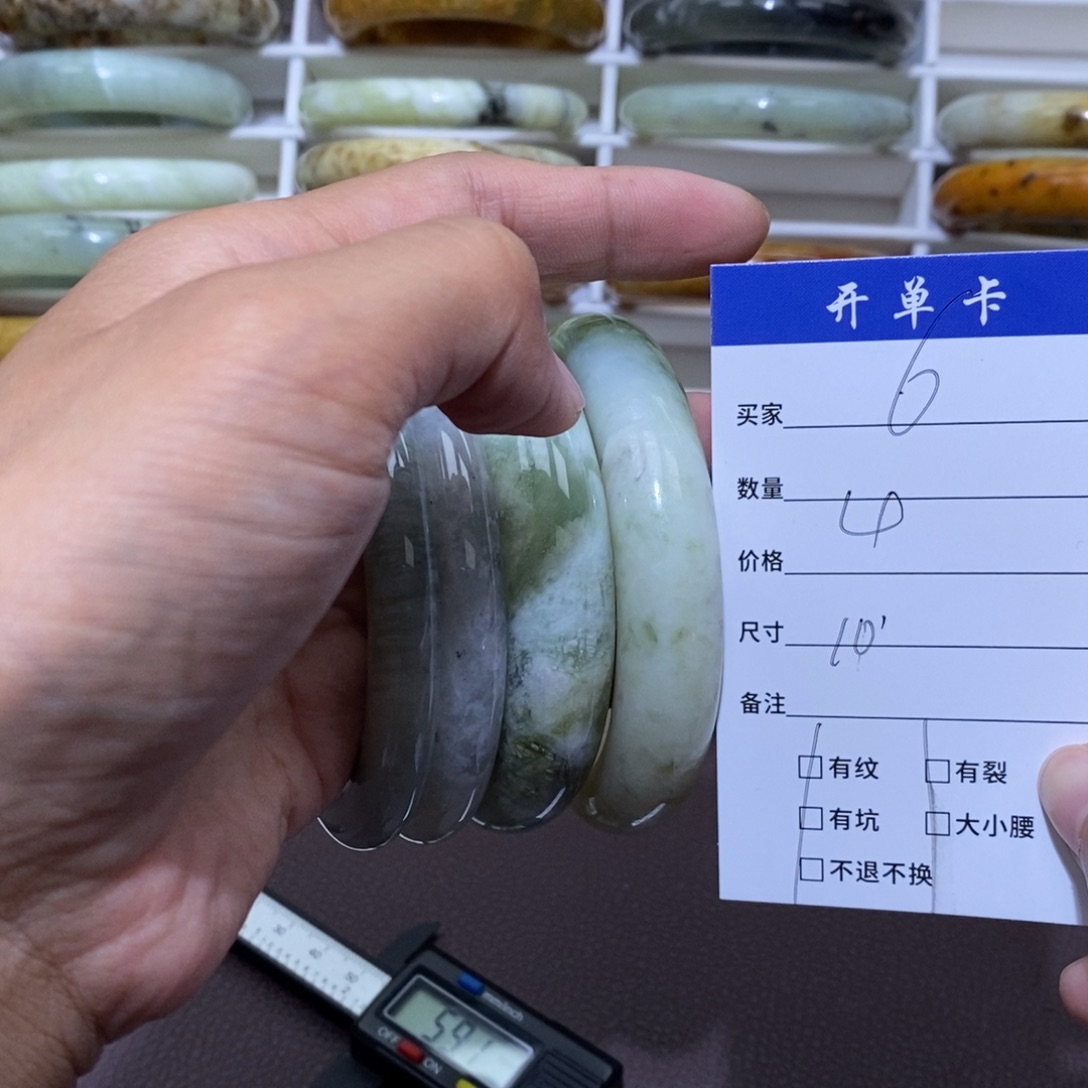 开单卡
买家 6
数量 4
价格
尺寸 10'
备注
□有纹 □有裂
□有坑 □大小腰
□不退不换
30 40 50
mm/inch
591
OFF ON